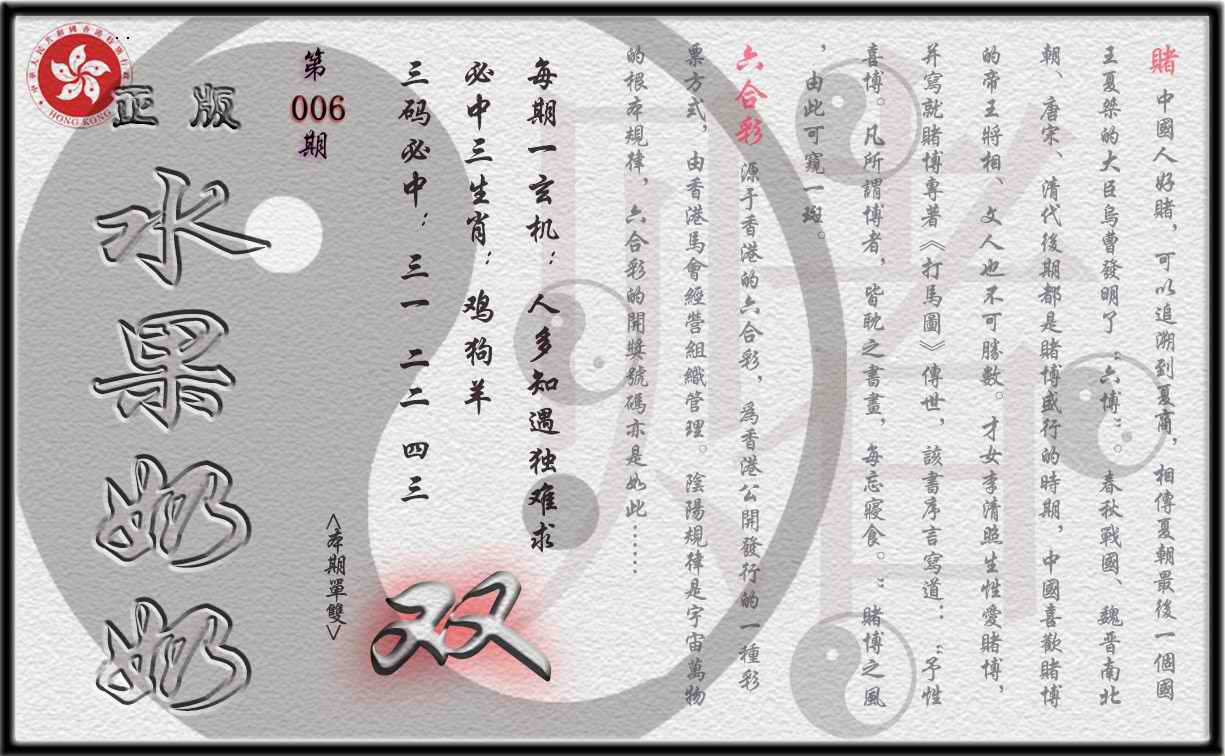 賭 中國人好賭，可以追溯到夏商，相傳夏朝最後一個國
王夏桀的大臣烏曹發明了“六博”。春秋戰國、魏晋南北
朝、唐宋、清代後期都是賭博盛行的時期，中國喜歡賭博
的帝王將相、文人也不可勝數。才女李清照生性愛賭博，
并寫就賭博專著《打馬圖》傳世，該書序言寫道：“予性
喜博。凡所謂博者，皆耽之書晝，每忘寢食。”賭博之風
，由此可窺一斑。
六合彩 源于香港的六合彩，爲香港公開發行的一種彩
票方式，由香港馬會經營組織管理。陰陽規律是宇宙萬物
的根本規律，六合彩的開獎號碼亦是如此……
每期一玄机：人多知遇独难求
必中三生肖：鸡狗羊
三码必中：三一 二二 四三
双
<本期單雙>
第
006
期
正版
水果奶奶
中華人民共和國香港特別行政區
HONG KONG
賭